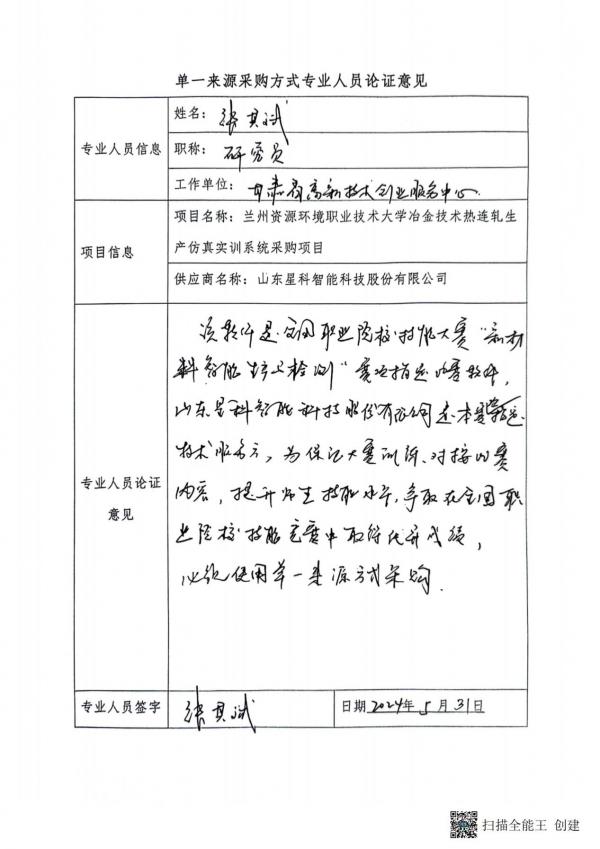 单一来源采购方式专业人员论证意见
专业人员信息
姓名：张其斌
职称：研究员
工作单位：甘肃省高新技术创业服务中心
项目信息
项目名称：兰州资源环境职业技术大学冶金技术热连轧生
产仿真实训系统采购项目
供应商名称：山东星科智能科技股份有限公司
专业人员论证
意见
该软件是全国职业院校技能大赛“新材
料智能生产与检测”赛项指定比赛软件，
山东星科智能科技股份有限公司是本赛项指定
技术服务方，为保证大赛训练、对接比赛
内容，提升师生技能水平，争取在全国职
业院校技能竞赛中取得优异成绩，
必须使用单一来源方式采购.
专业人员签字
张其斌
日期2024年5月31日
扫描全能王 创建